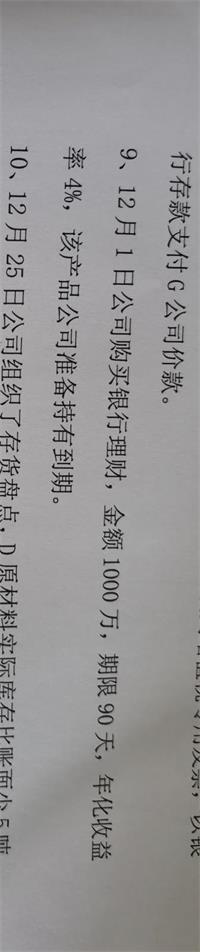 专用发票，以银
行存款支付 G 公司价款。
9、12 月 1 日公司购买银行理财，金额 1000 万，期限 90 天，年化收益
率 4%，该产品公司准备持有到期。
10、12 月 25 日公司组织了存货盘点，D 原材料实际库存比账面少 5 吨